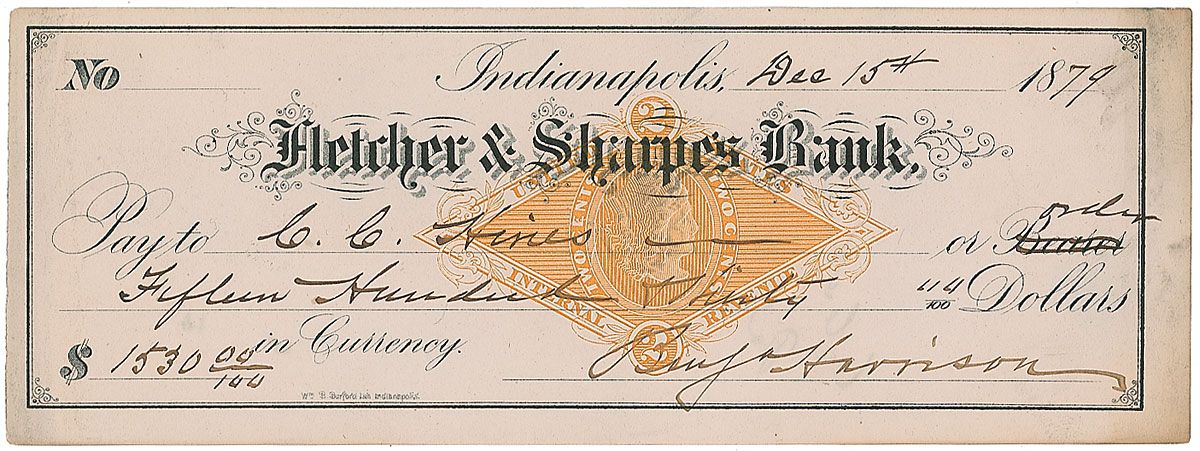 No Indianapolis, Dec 15th 1879
Fletcher & Sharpe's Bank,
2
UNITED STATES
TWO CENTS
TWO CENTS
Pay to C. C. Hines or Bearer order
Fifteen Hundred & Thirty /100 Dollars
INTERNAL REVENUE
2
$ 1530 00/100 in Currency.
Benj Harrison
Wm B. Burford Lith Indianapolis.